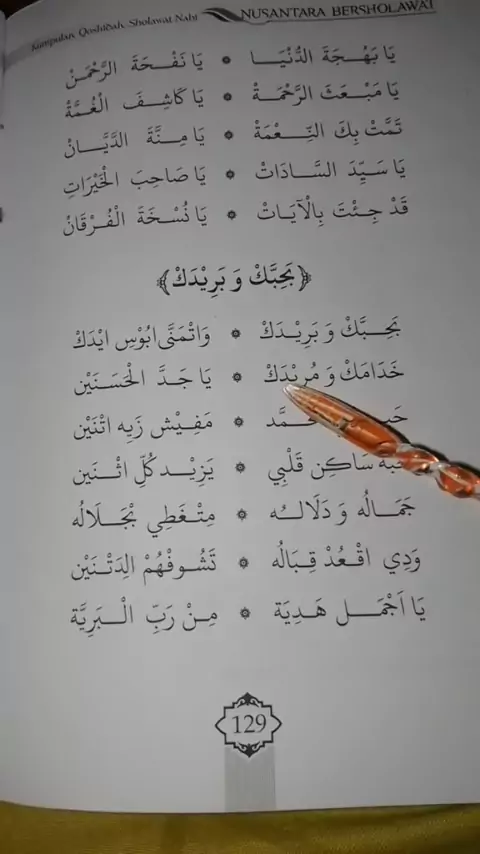 Kumpulan Qoshidah Sholawat Nabi NUSANTARA BERSHOLAWAT
يَا بَهْجَةَ الدُّنْيَا ۞ يَا نَفْحَةَ الرَّحْمَنْ
يَا مَبْعَثَ الرَّحْمَةْ ۞ يَا كَاشِفَ الْغُمَّةْ
تَمَّتْ بِكَ النِّعْمَةْ ۞ يَا مِنَّةَ الدَّيَّانْ
يَا سَيِّدَ السَّادَاتْ ۞ يَا صَاحِبَ الْخَيْرَاتِ
قَدْ جِئْتَ بِالْآيَاتْ ۞ يَا نُسْخَةَ الْفُرْقَانْ
﴿بَحِبَّكْ وَ بَرِيْدَكْ﴾
بَحِبَّكْ وَ بَرِيْدَكْ ۞ وَاتْمَنَّى ابُوْسِ ايْدَكْ
خَدَامَكْ وَ مُرِيْدَكْ ۞ يَا جَدَّ الْحَسَنَيْن
۞ مَفِيْش زَيِه اتْنَيْن
سَاكِن قَلْبِي ۞ يَزِيْد كُلّ اثْنَين
جَمَالُه وَ دَلَالُه ۞ مِتْغَطِي بْجَلَالُه
وَدِي اقْعُدْ قِبَالُه ۞ تَشُوفْهُمْ الِدَتْنَيْن
يَا اَجْمَل هَدِيَة ۞ مِنْ رَبِّ الْبَرِيَّة
129